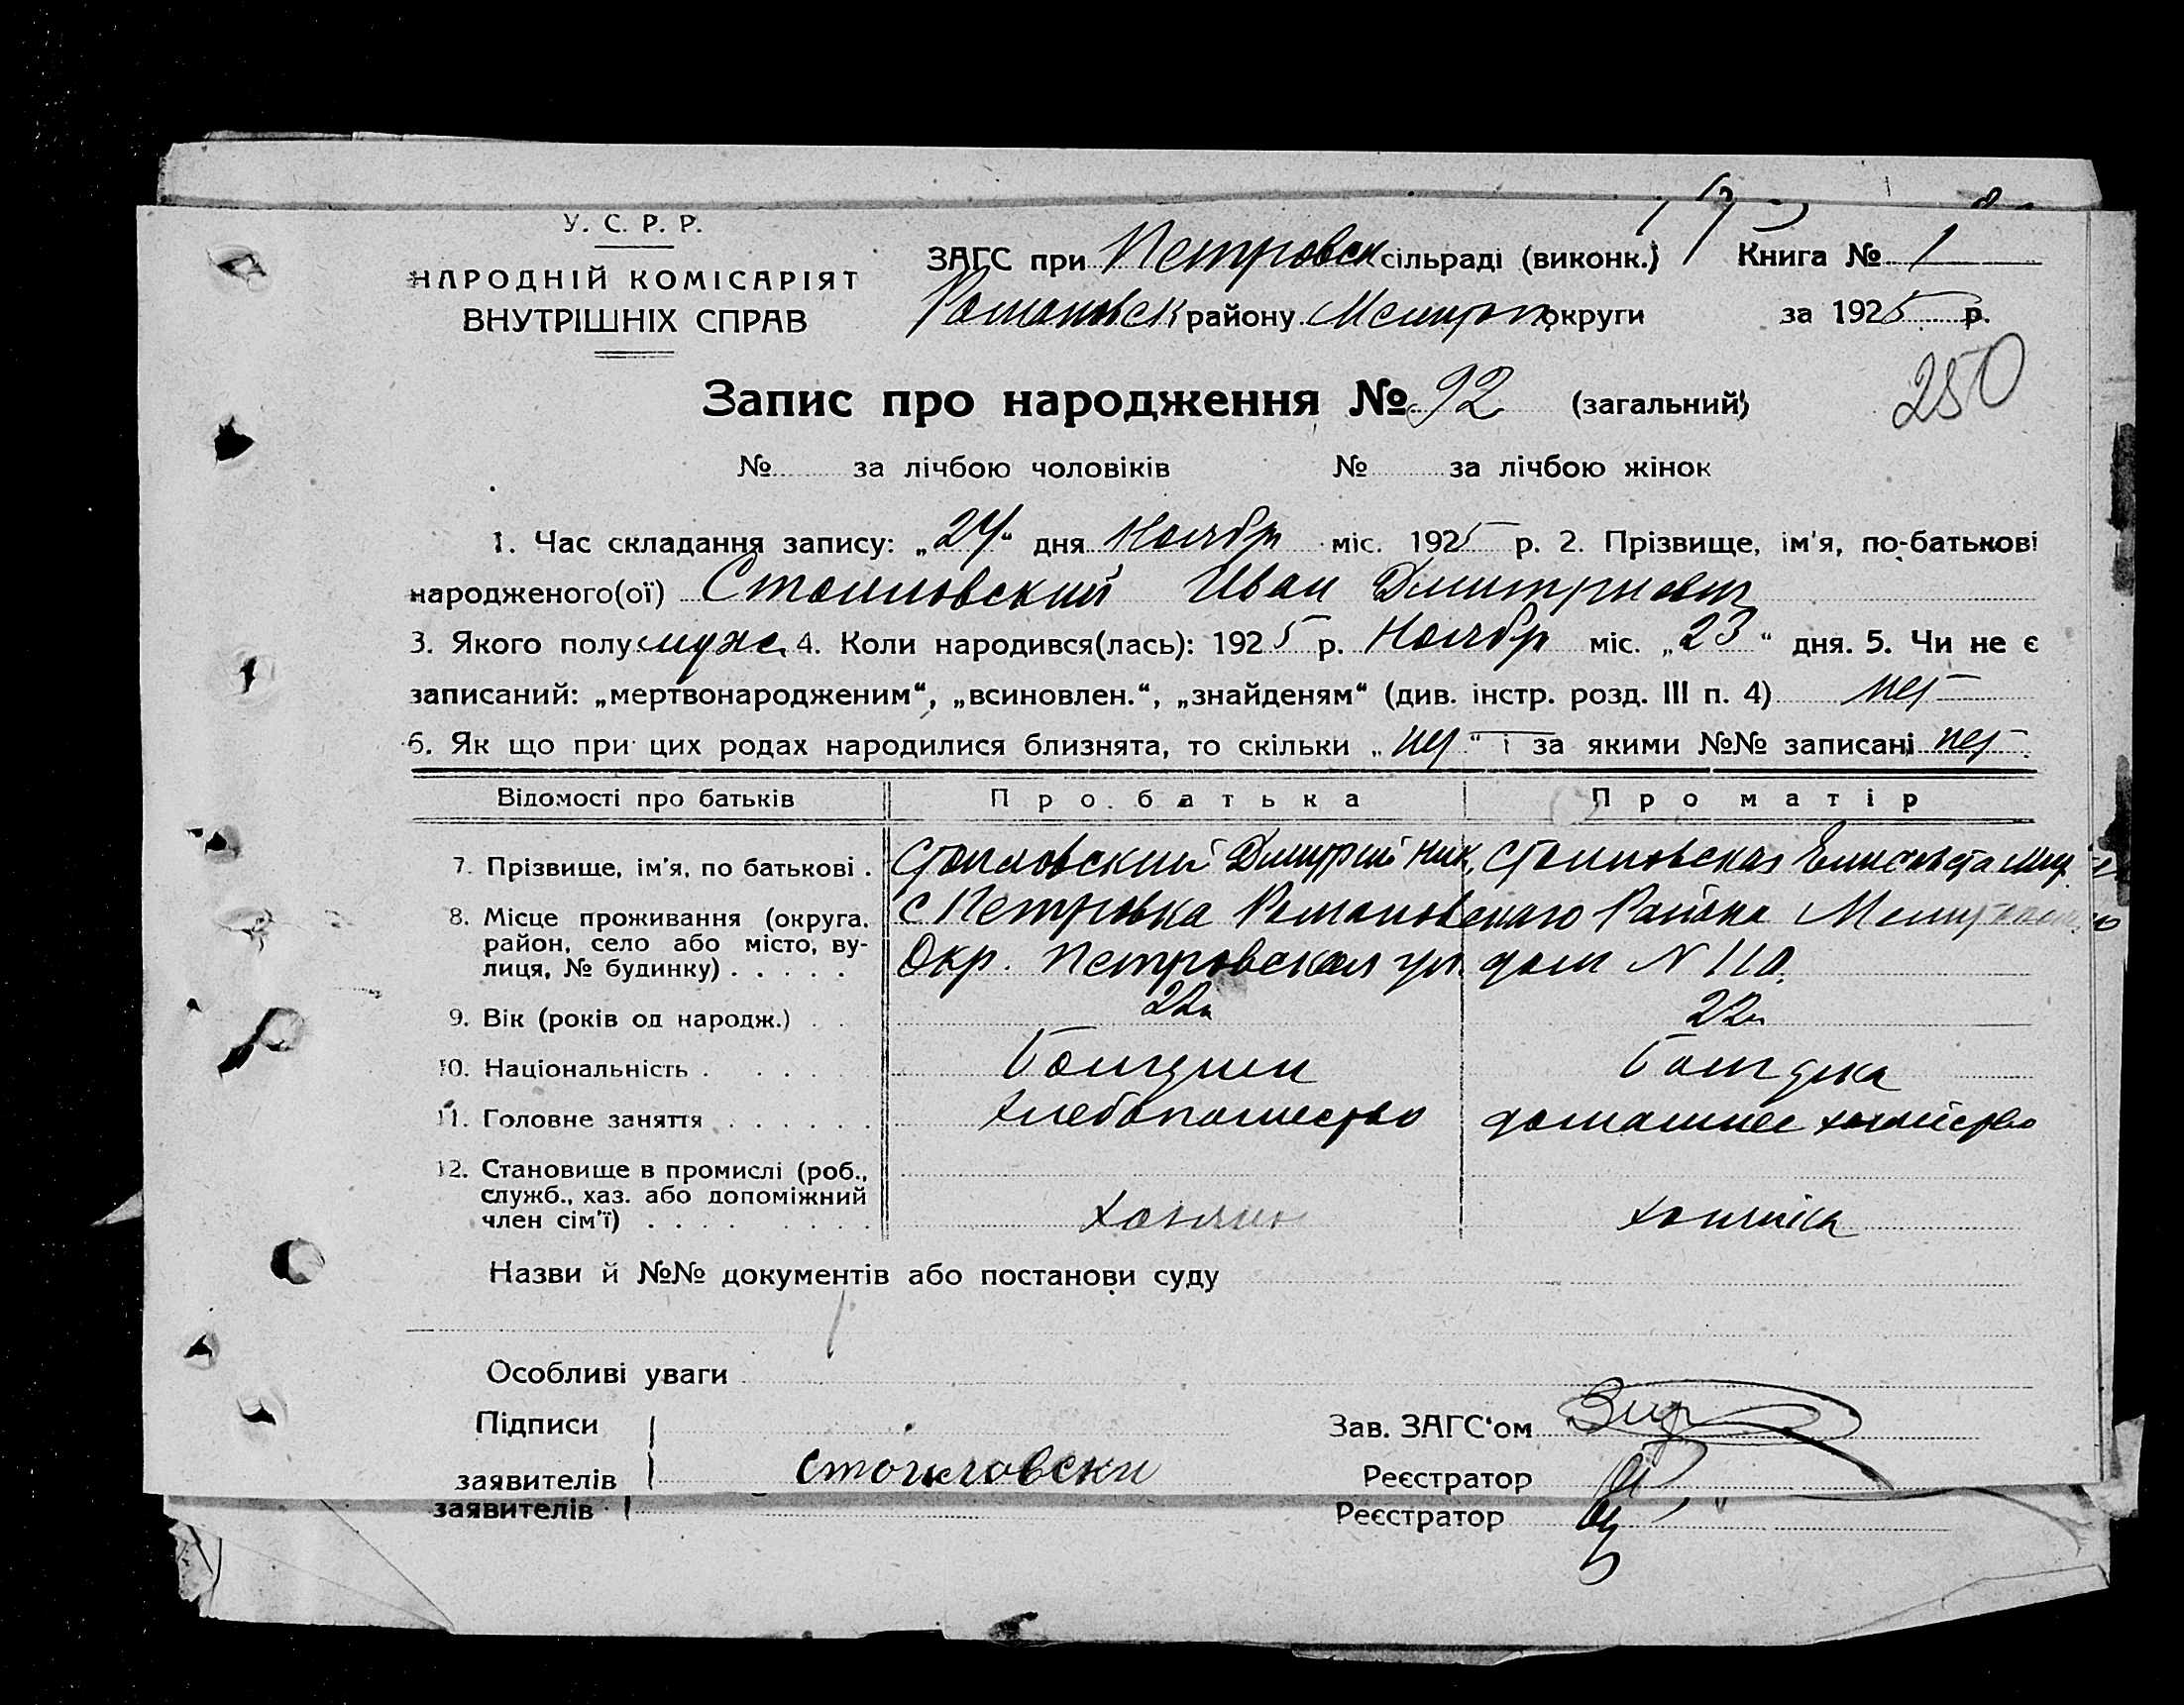 У. С. Р. Р.
НАРОДНІЙ КОМІСАРІЯТ
ВНУТРІШНІХ СПРАВ
ЗАГС при Петровск сільраді (виконк.) Книга № 1
Романовск району Мелитоп округи за 1925 р.
250
Запис про народження № 92 (загальний)
№ за лічбою чоловіків № за лічбою жінок
1. Час складання запису: „24“ дня Ноябр міс. 1925 р. 2. Прізвище, ім'я, по-батькові
народженого(ої) Стоиловский Иван Дмитриевич
3. Якого полу муж. 4. Коли народився(лась): 1925 р. Ноябр міс. „23“ дня. 5. Чи не є
записаний: „мертвонародженим“, „всиновлен.“, „знайденям“ (див. інстр. розд. III п. 4) нет
6. Як що при цих родах народилися близнята, то скільки „нет“ і за якими №№ записані нет.
Відомості про батьків Про батька Про матір
7. Прізвище, ім'я, по батькові . Стоиловский Дмитрий Ник. Стоиловская Елисавета
8. Місце проживання (округа, район, село або місто, ву-лиця, № будинку) . . . . . с Петровка Романовскаго Района
Окр. Петровская ул. дом N 110.
9. Вік (років од народж.) . . 22 22
10. Національність . . . . . Болгарин Болгарка
11. Головне заняття . . . . . . хлебопашество домашнее хозяйство
12. Становище в промислі (роб.,
служб., хаз. або допоміжний
член сім'ї) . . . . . . . . хозяин хозяйка
Назви й №№ документів або постанови суду
Особливі уваги
Підписи Зав. ЗАГС'ом
заявителів Стоиловски Реєстратор
заявителів Реєстратор